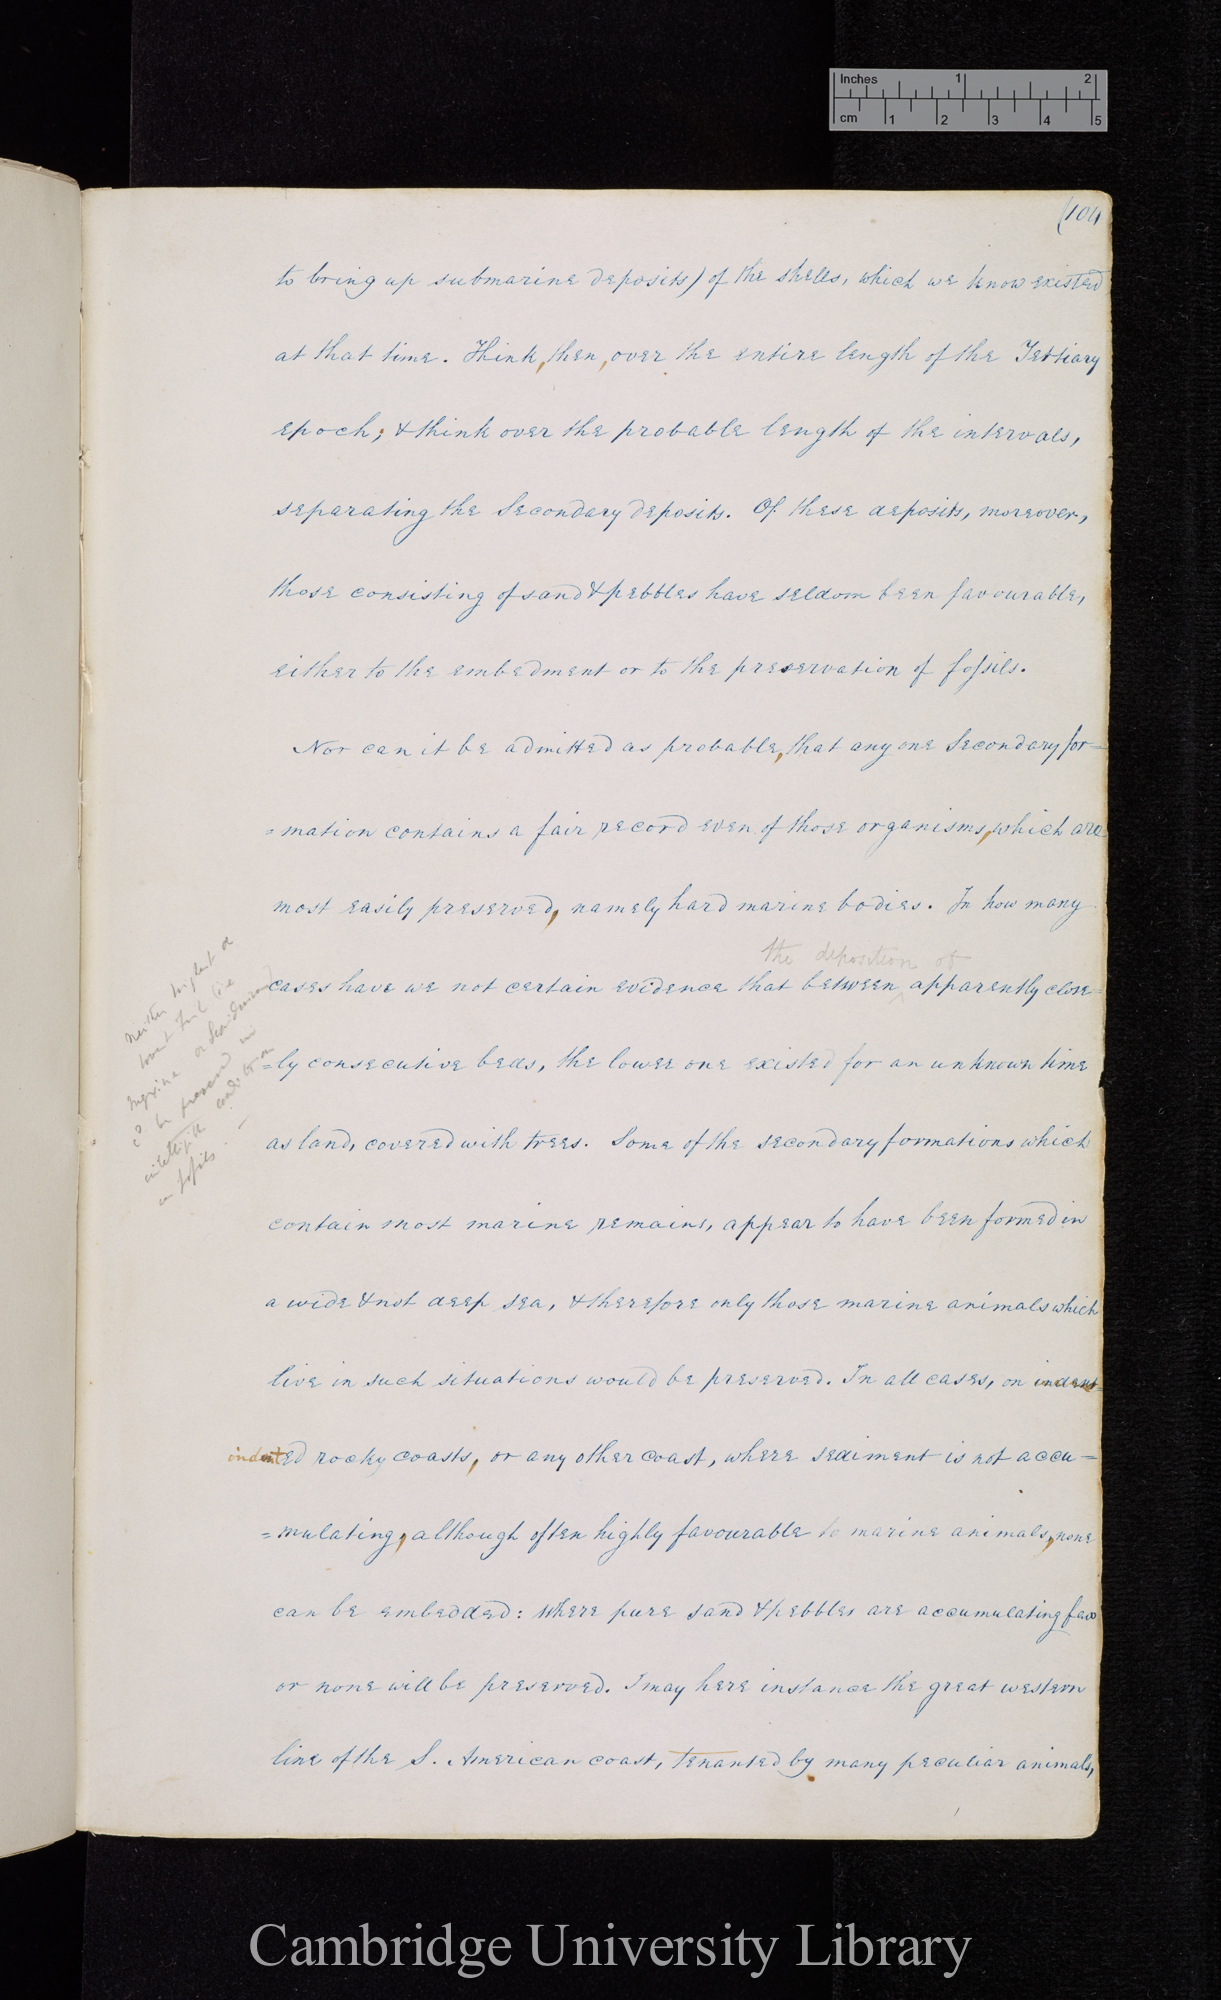 Inches 1 2
cm 1 2 3 4 5
(104
to bring up submarine deposits) of the shells, which we know existed
at that time. Think, then, over the entire length of the Tertiary
epoch; & think over the probable length of the intervals,
separating the Secondary deposits. Of these deposits, moreover,
those consisting of sand & pebbles have seldom been favourable,
either to the embedment or to the preservation of fossils.
Nor can it be admitted as probable, that any one Secondary for=
=mation contains a fair record even of those organisms, which are
most easily preserved, namely hard marine bodies. In how many
the deposition of
cases have we not certain evidence that between apparently close=
=ly consecutive beds, the lower one existed for an unknown time
as land, covered with trees. Some of the secondary formations which
contain most marine remains, appear to have been formed in
a wide & not deep sea, & therefore only those marine animals which
live in such situations would be preserved. In all cases, on indent=
indented rocky coasts, or any other coast, where sediment is not accu=
=mulating, although often highly favourable to marine animals, none
can be embedded: where pure sand & pebbles are accumulating few
or none will be preserved. I may here instance the great western
line of the S. American coast, tenanted by many peculiar animals,
neither
marine
be preserved in
condition
in fossils
Cambridge University Library